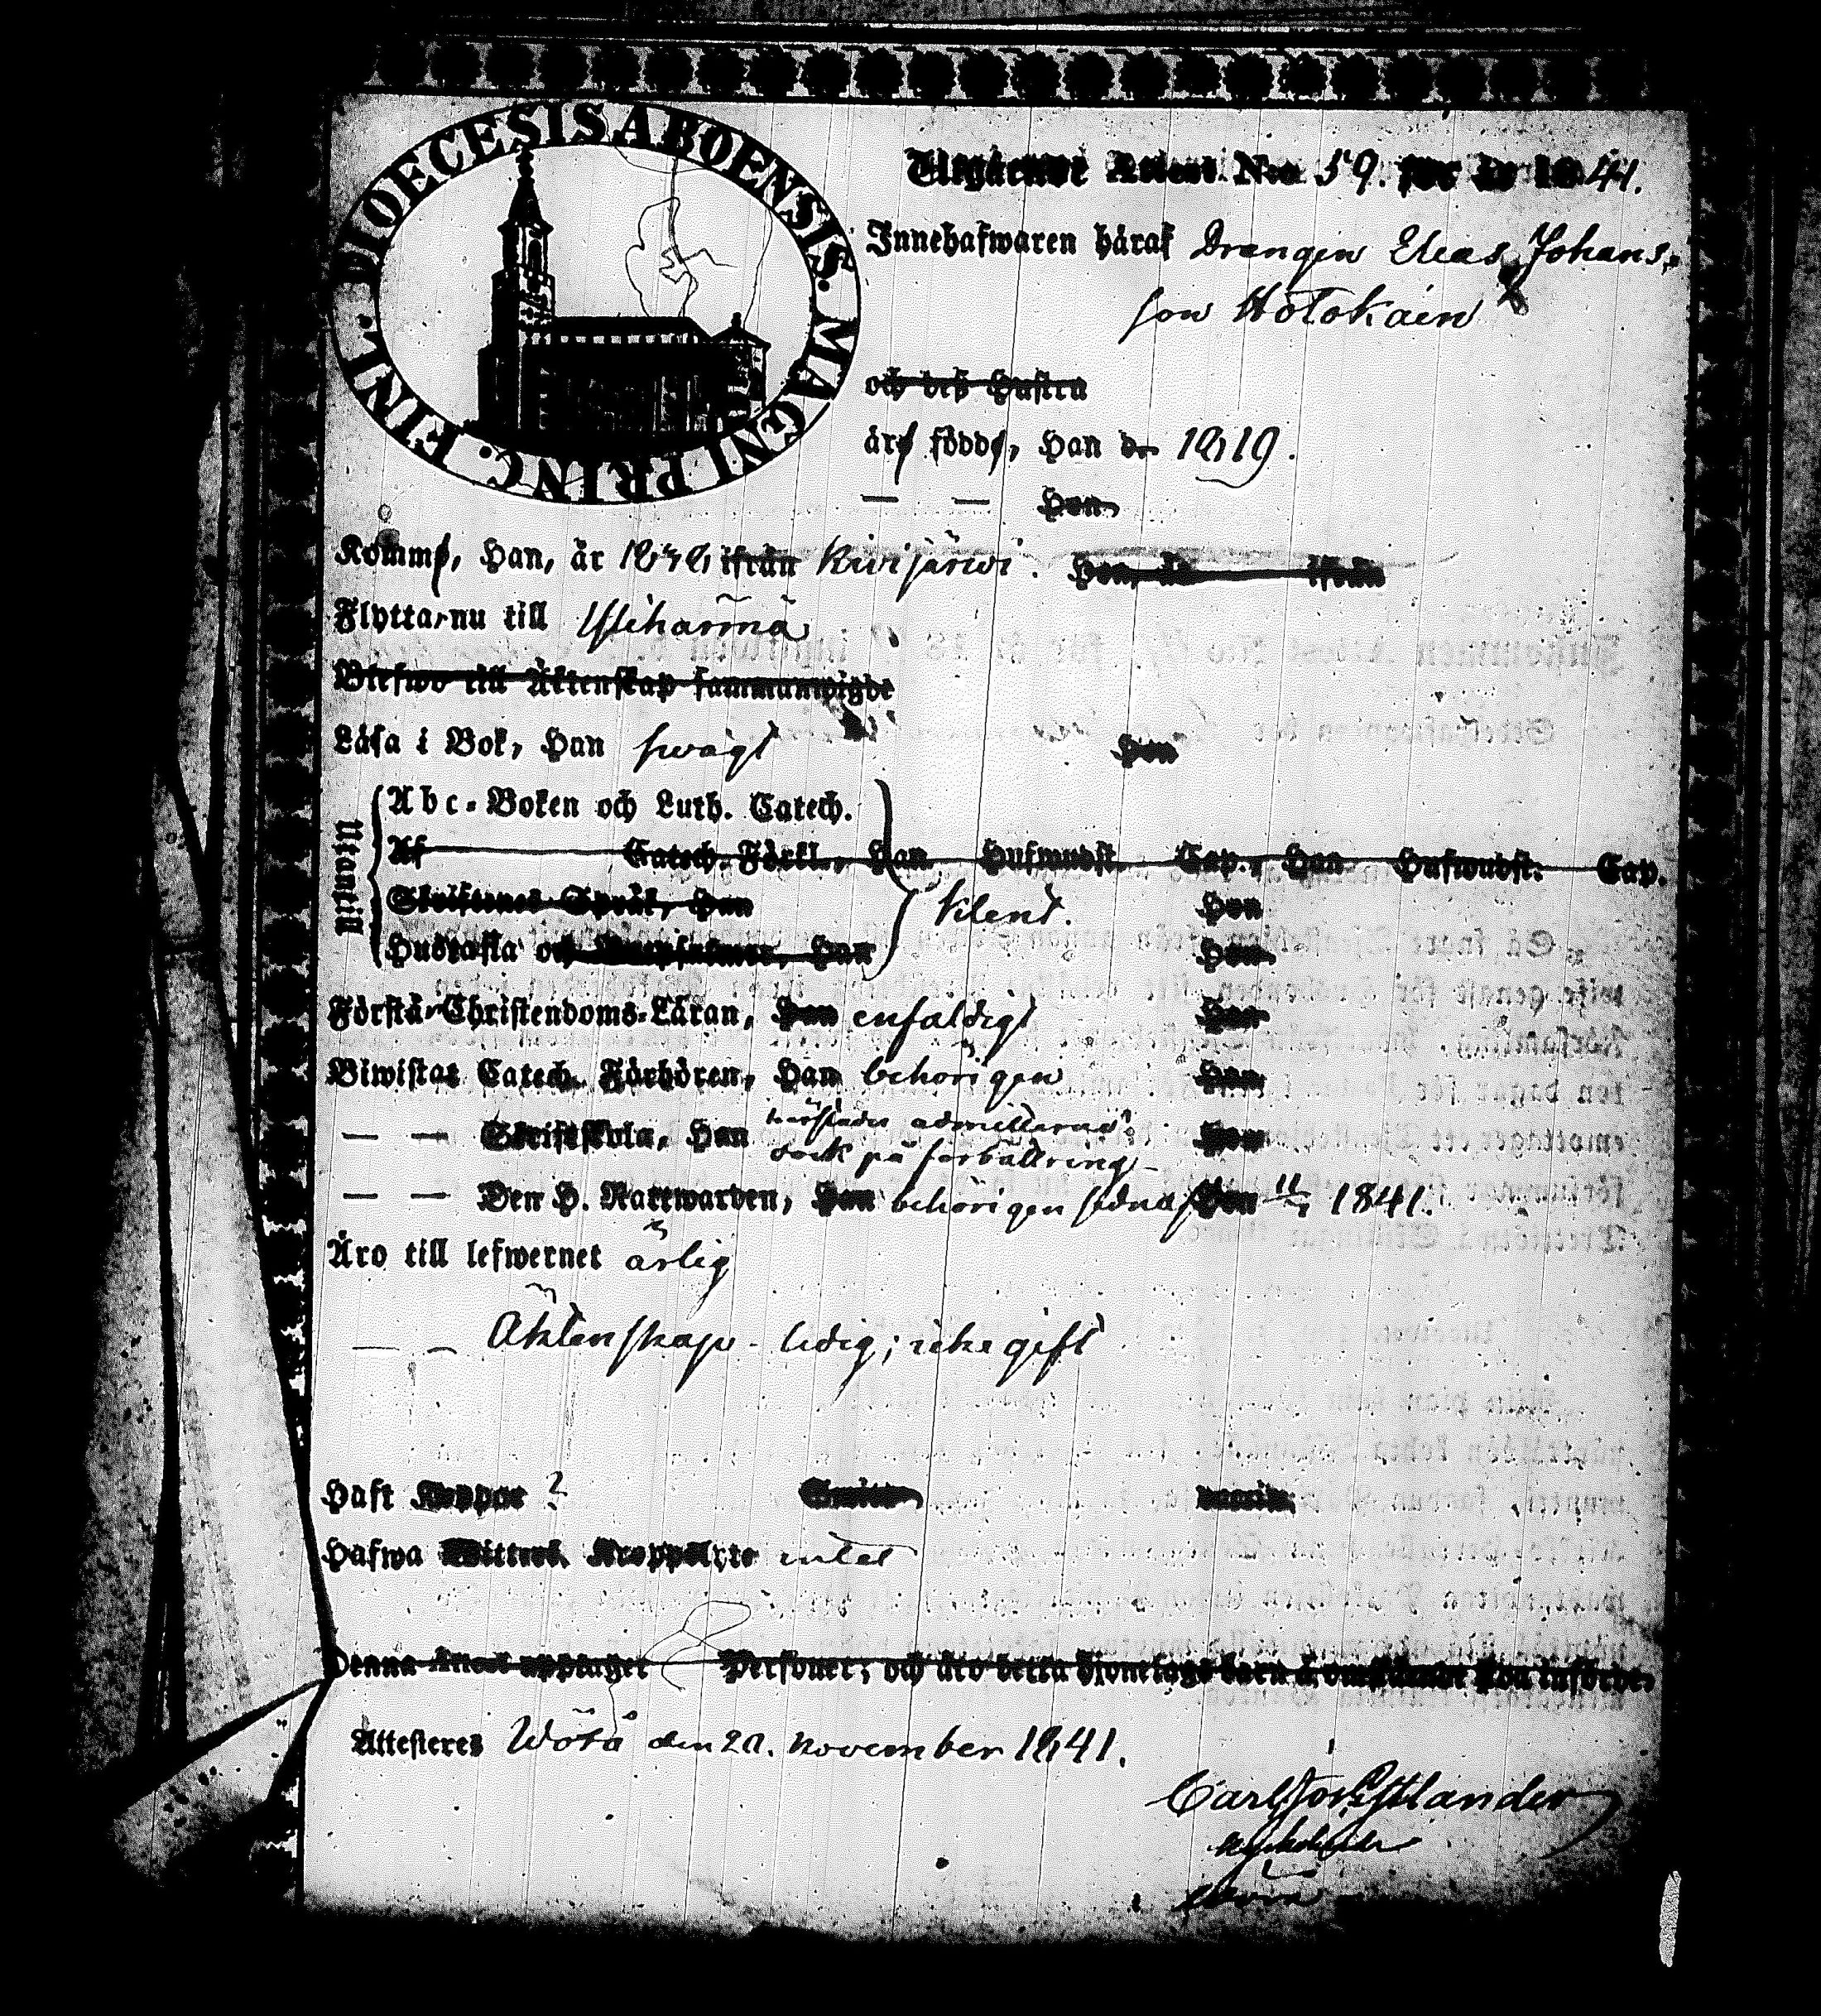 DIOECESIS ABOENSIS. MAGNI PRINC. FINL.
Utgående Attest N:o 59. för år 1841.
Innehafwaren häraf Drängen Elias Johans-
son
och deß Hustru
äro födde, Han d. 1819.
— — Hon
Komme, Han, år ifrån Kivijärwi. Hon, år ifrån
Flytta nu till Ylihärmä
Blefwo till Äktenskap sammanwigde
Läsa i Bok, Han swagt Hon
Utantill
Abc-Boken och Luth. Catech.
Af Catech. Förkl., Han Hufwudst. Cap., Hon Hufwudst. Cap.
Skriftenes Språk, Han klent. Hon
Hustafla och Han Hon
Förstå Christendoms-Läran, Han enfaldigt Hon
Biwistat Catech. Förhören, Han behörigen Hon
— — Skriftskola, Han härstädes admitterad Hon
dock på förbättring
— — Den H. Nattwarden, Han behörigen sednast Hon 1841.
Äro till lefwernet ärlig
— — Äktenskap ledig; icke gift
Haft Koppor ?
Hafwa Witterl. Kroppslyte intet
Denna Attest upptager Personer; och äro detta Hjonelags barn å omstående sida införde.
Attesteres Wörå den 20. november 1841.
Carl Estlander